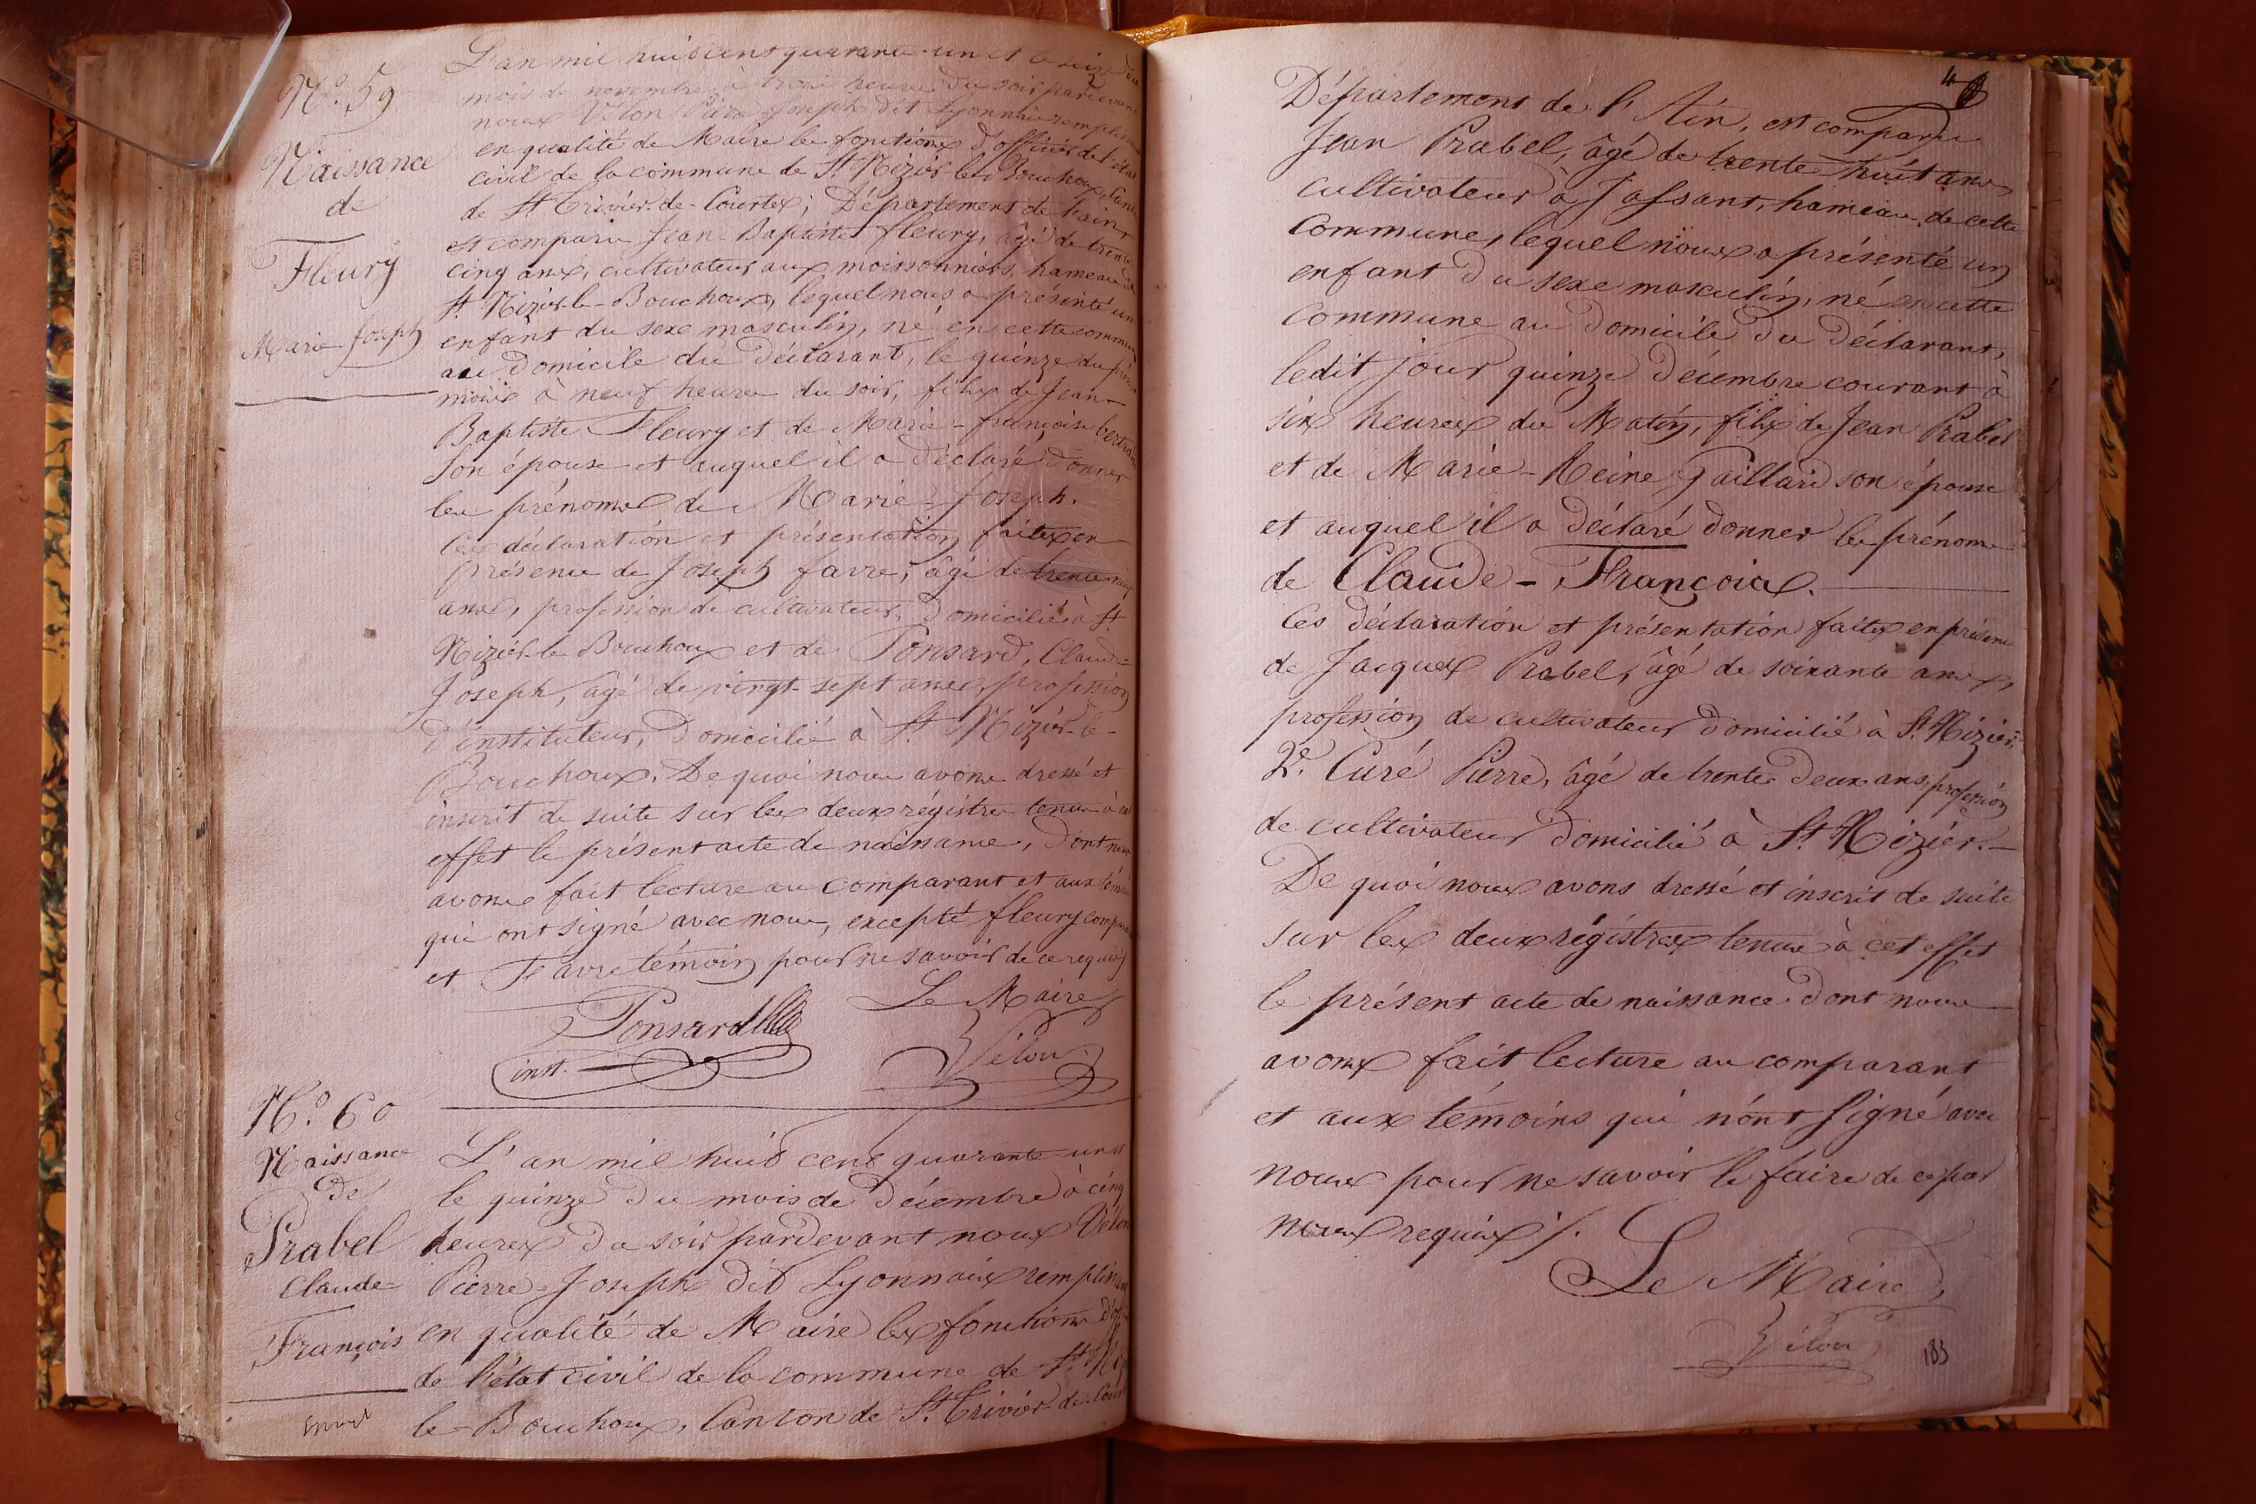 N.º 59
Naissance
de
Fleury
Marie Joseph
L'an mil huit cent quarante-un et le seize du
mois de novembre à trois heures du soir pardevant
nous Vélon Pierre Joseph dit Lyonnais remplissant
en qualité de Maire les fonctions d'officier de l'état
civil de la commune de St Nizier-le-Bouchoux, Canton
de St Trivier-de-Courtes; Département de l'ain,
est comparu Jean-Baptiste fleury, âgé de trente
cinq ans, cultivateur aux moissonniers, hameau de
St Nizier-le-Bouchoux, lequel nous a présenté un
enfant du sexe masculin, né en cette commune
au domicile du déclarant, le quinze du présent
mois à neuf heures du soir, fils de Jean-
Baptiste Fleury et de Marie-françoise
son épouse et auquel il a déclaré donner
les prénoms de Marie-Joseph.
Ces déclaration et présentation faites en
présence de Joseph favre, âgé de trente
ans, profession de cultivateur, domicilié à St
Nizier-le-Bouchoux et de Ponsard, Claude-
Joseph, âgé de vingt-sept ans, profession
d'instituteur, domicilié à St Nizier-le-
Bouchoux, De quoi nous avons dressé et
inscrit de suite sur les deux régistres tenus à cet
effet le présent acte de naissance, dont nous
avons fait lecture au comparant et aux témoins
qui ont signé avec nous, excepté fleury comparant
et Favre témoin pour ne savoir de ce requis
Le Maire
Ponsard
inst.
Vélon
N.º 60
Naissance
de
Prabel
Claude-
François
L'an mil huit cent quarante-un et
le quinze du mois de Décembre à cinq
heures du soir pardevant nous Vélon
Pierre-Joseph dit Lyonnais remplissant
en qualité de Maire les fonctions d'off
de l'état civil de la commune de St Niz
le-Bouchoux, Canton de St Trivier-de-Cour
4
Département de l'Ain, est comparu
Jean Prabel, âgé de trente-huit ans
cultivateur à Jassant, hameau de cette
commune, lequel nous a présenté un
enfant du sexe masculin, né en cette
commune au domicile du déclarant,
ledit jour quinze décembre courant à
six heures du Matin, fils de Jean Prabel
et de Marie-Reine Gaillard son épouse
et auquel il a déclaré donner les prénoms
de Claude-François.
Ces déclaration et présentation faites en présence
de Jacques Prabel, âgé de soixante ans,
profession de cultivateur domicilié à St Nizier.
2º. Curé Pierre, âgé de trente-deux ans, profession
de cultivateur domicilié à St Nizier.
De quoi nous avons dressé et inscrit de suite
sur les deux régistres tenus à cet effet
le présent acte de naissance dont nous
avons fait lecture au comparant
et aux témoins qui n'ont signé avec
nous pour ne savoir le faire de ce par
nous requis /.
Le Maire,
Vélon
183